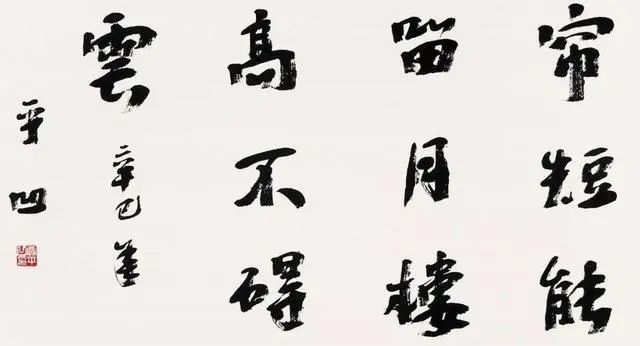 帘短能
留月樓
高不碍
雲 辛巳
平凹